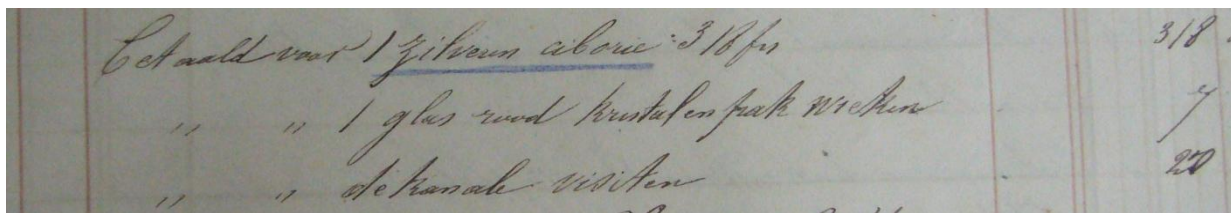 betaald voor 1 zilveren ciborie : 318 frs 318
" " 1 glas rood kristalen pak
" " dekanale visiten 20